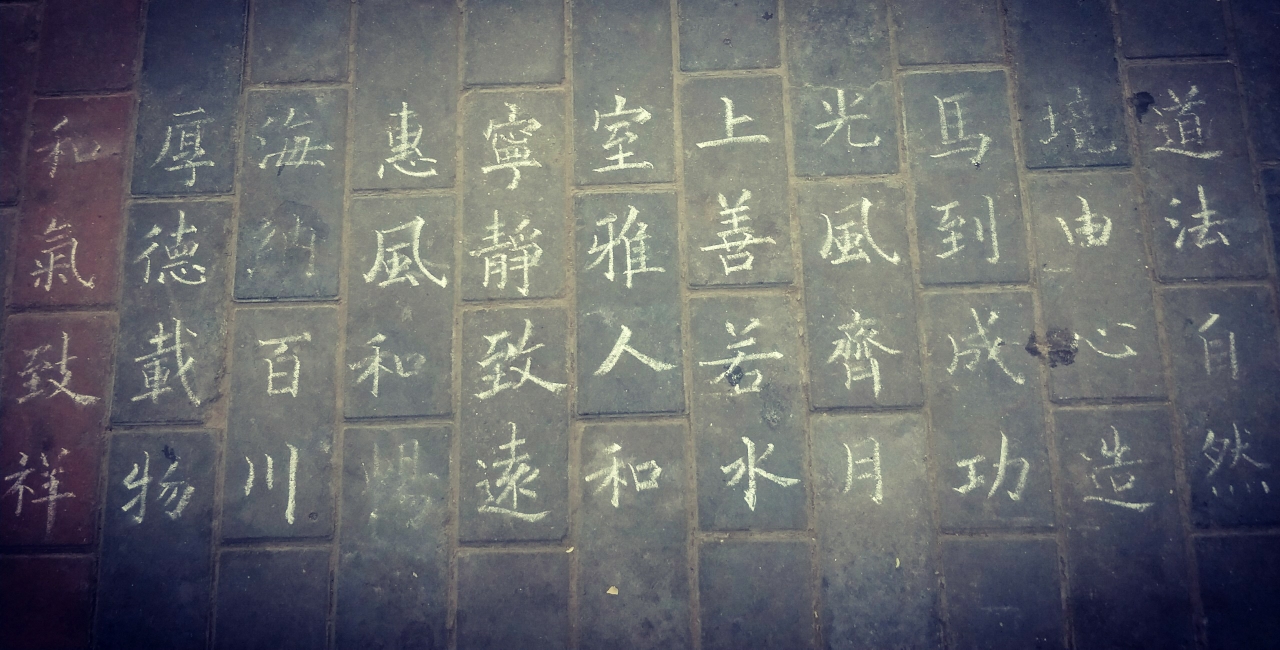 道法自然
境由心造
馬到成功
光風齊月
上善若水
室雅人和
寧靜致遠
惠風和暢
海納百川
厚德載物
和氣致祥